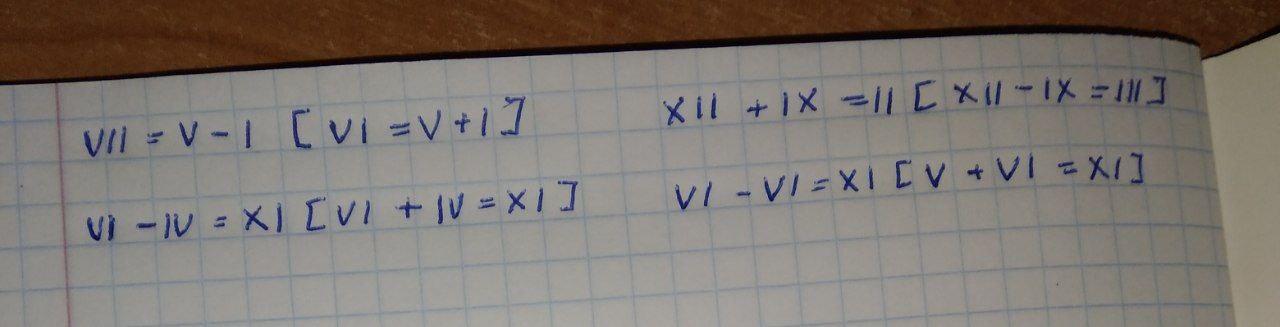 VII = V - I [VI = V + I]
XII + IX = II [XII - IX = III]
VI - IV = XI [VI + IV = XI]
VI - VI = XI [V + VI = XI]